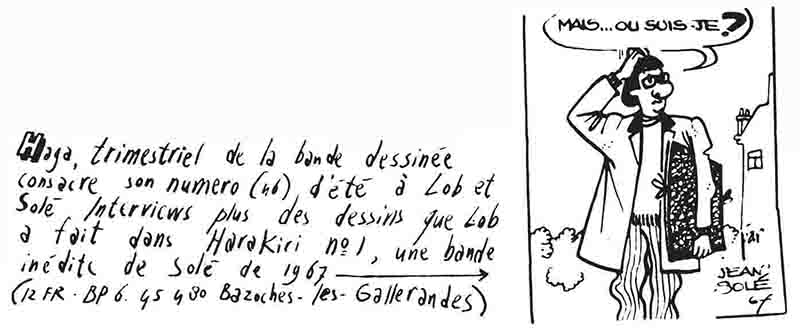 Haga, trimestriel de la bande dessinée
consacre son numero (46) d'été à Lob et
Solé Interviews plus des dessins que Lob
a fait dans HaraKiri nº1, une bande
inédite de Solé de 1967
(12 FR. BP 6. 45 480 Bazoches-les-Gallerandes)
MAIS...OU SUIS-JE?
JEAN
SOLÉ
67